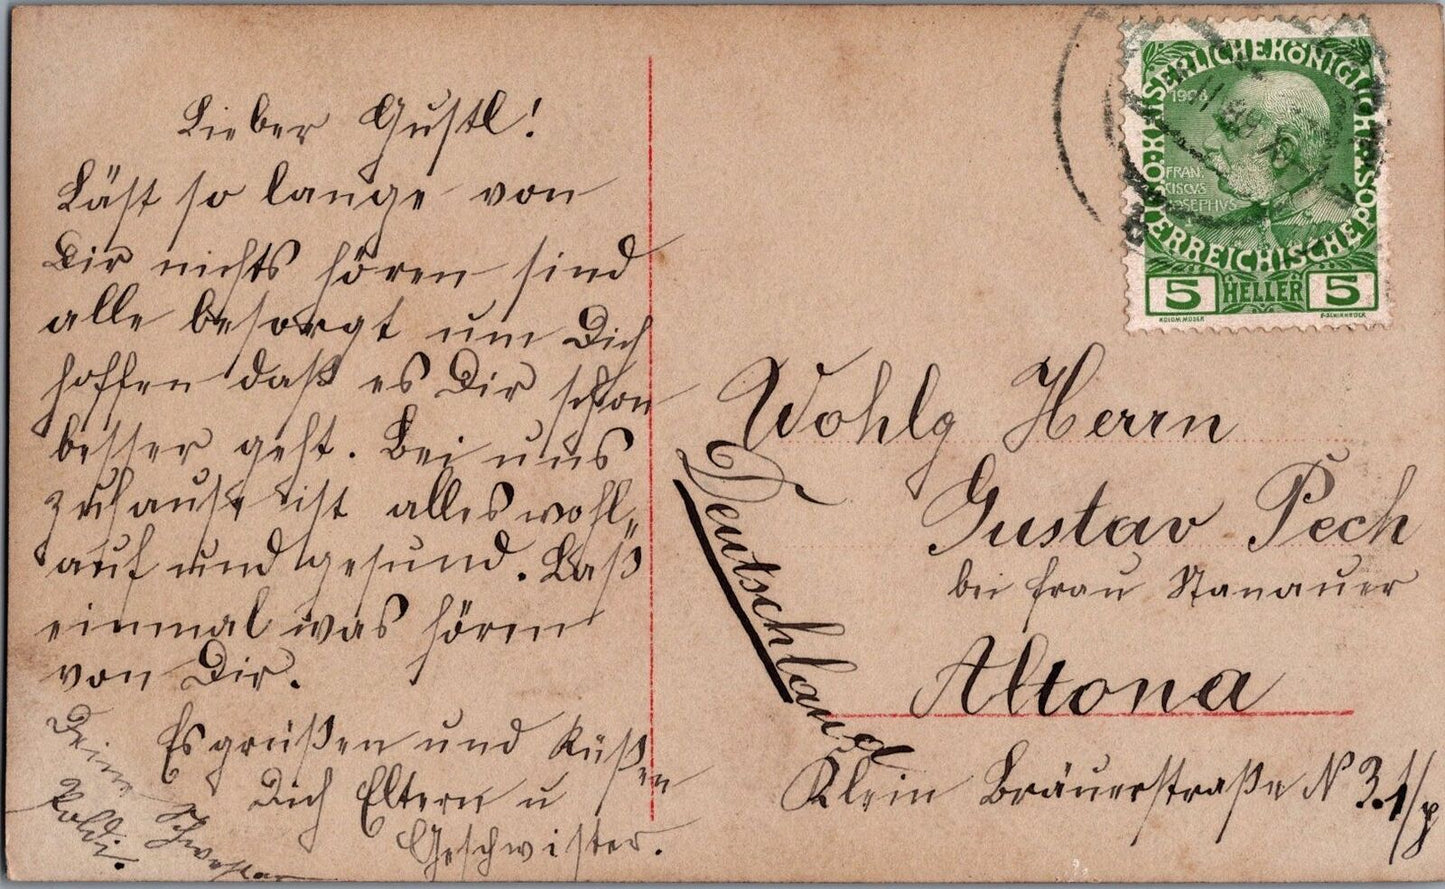 Lieber Gustl!
Läst so lange von
Dir nichts hören sind
alle besorgt um Dich
hoffen daß es Dir schon
besser geht. Bei uns
zuhause ist alles wohl„
auf und gesund. Laß
einmal was hören
von Dir.
Es grüßen und Küßen
Dich Eltern u
Geschwister.
Deine Schwester
Poldi.
K.K. ÖSTERREICHISCHE POST
KAISERLICHEKÖNIGLICHE
1908
FRAN.
CISCVS
IOSEPHVS
5 HELLER 5
KOLOM.MOSER
Wohlg Herrn
Gustav Pech
bei Frau Stanauer
Altona
Klein Bräuerstraße N 3.1/p
Deutschland